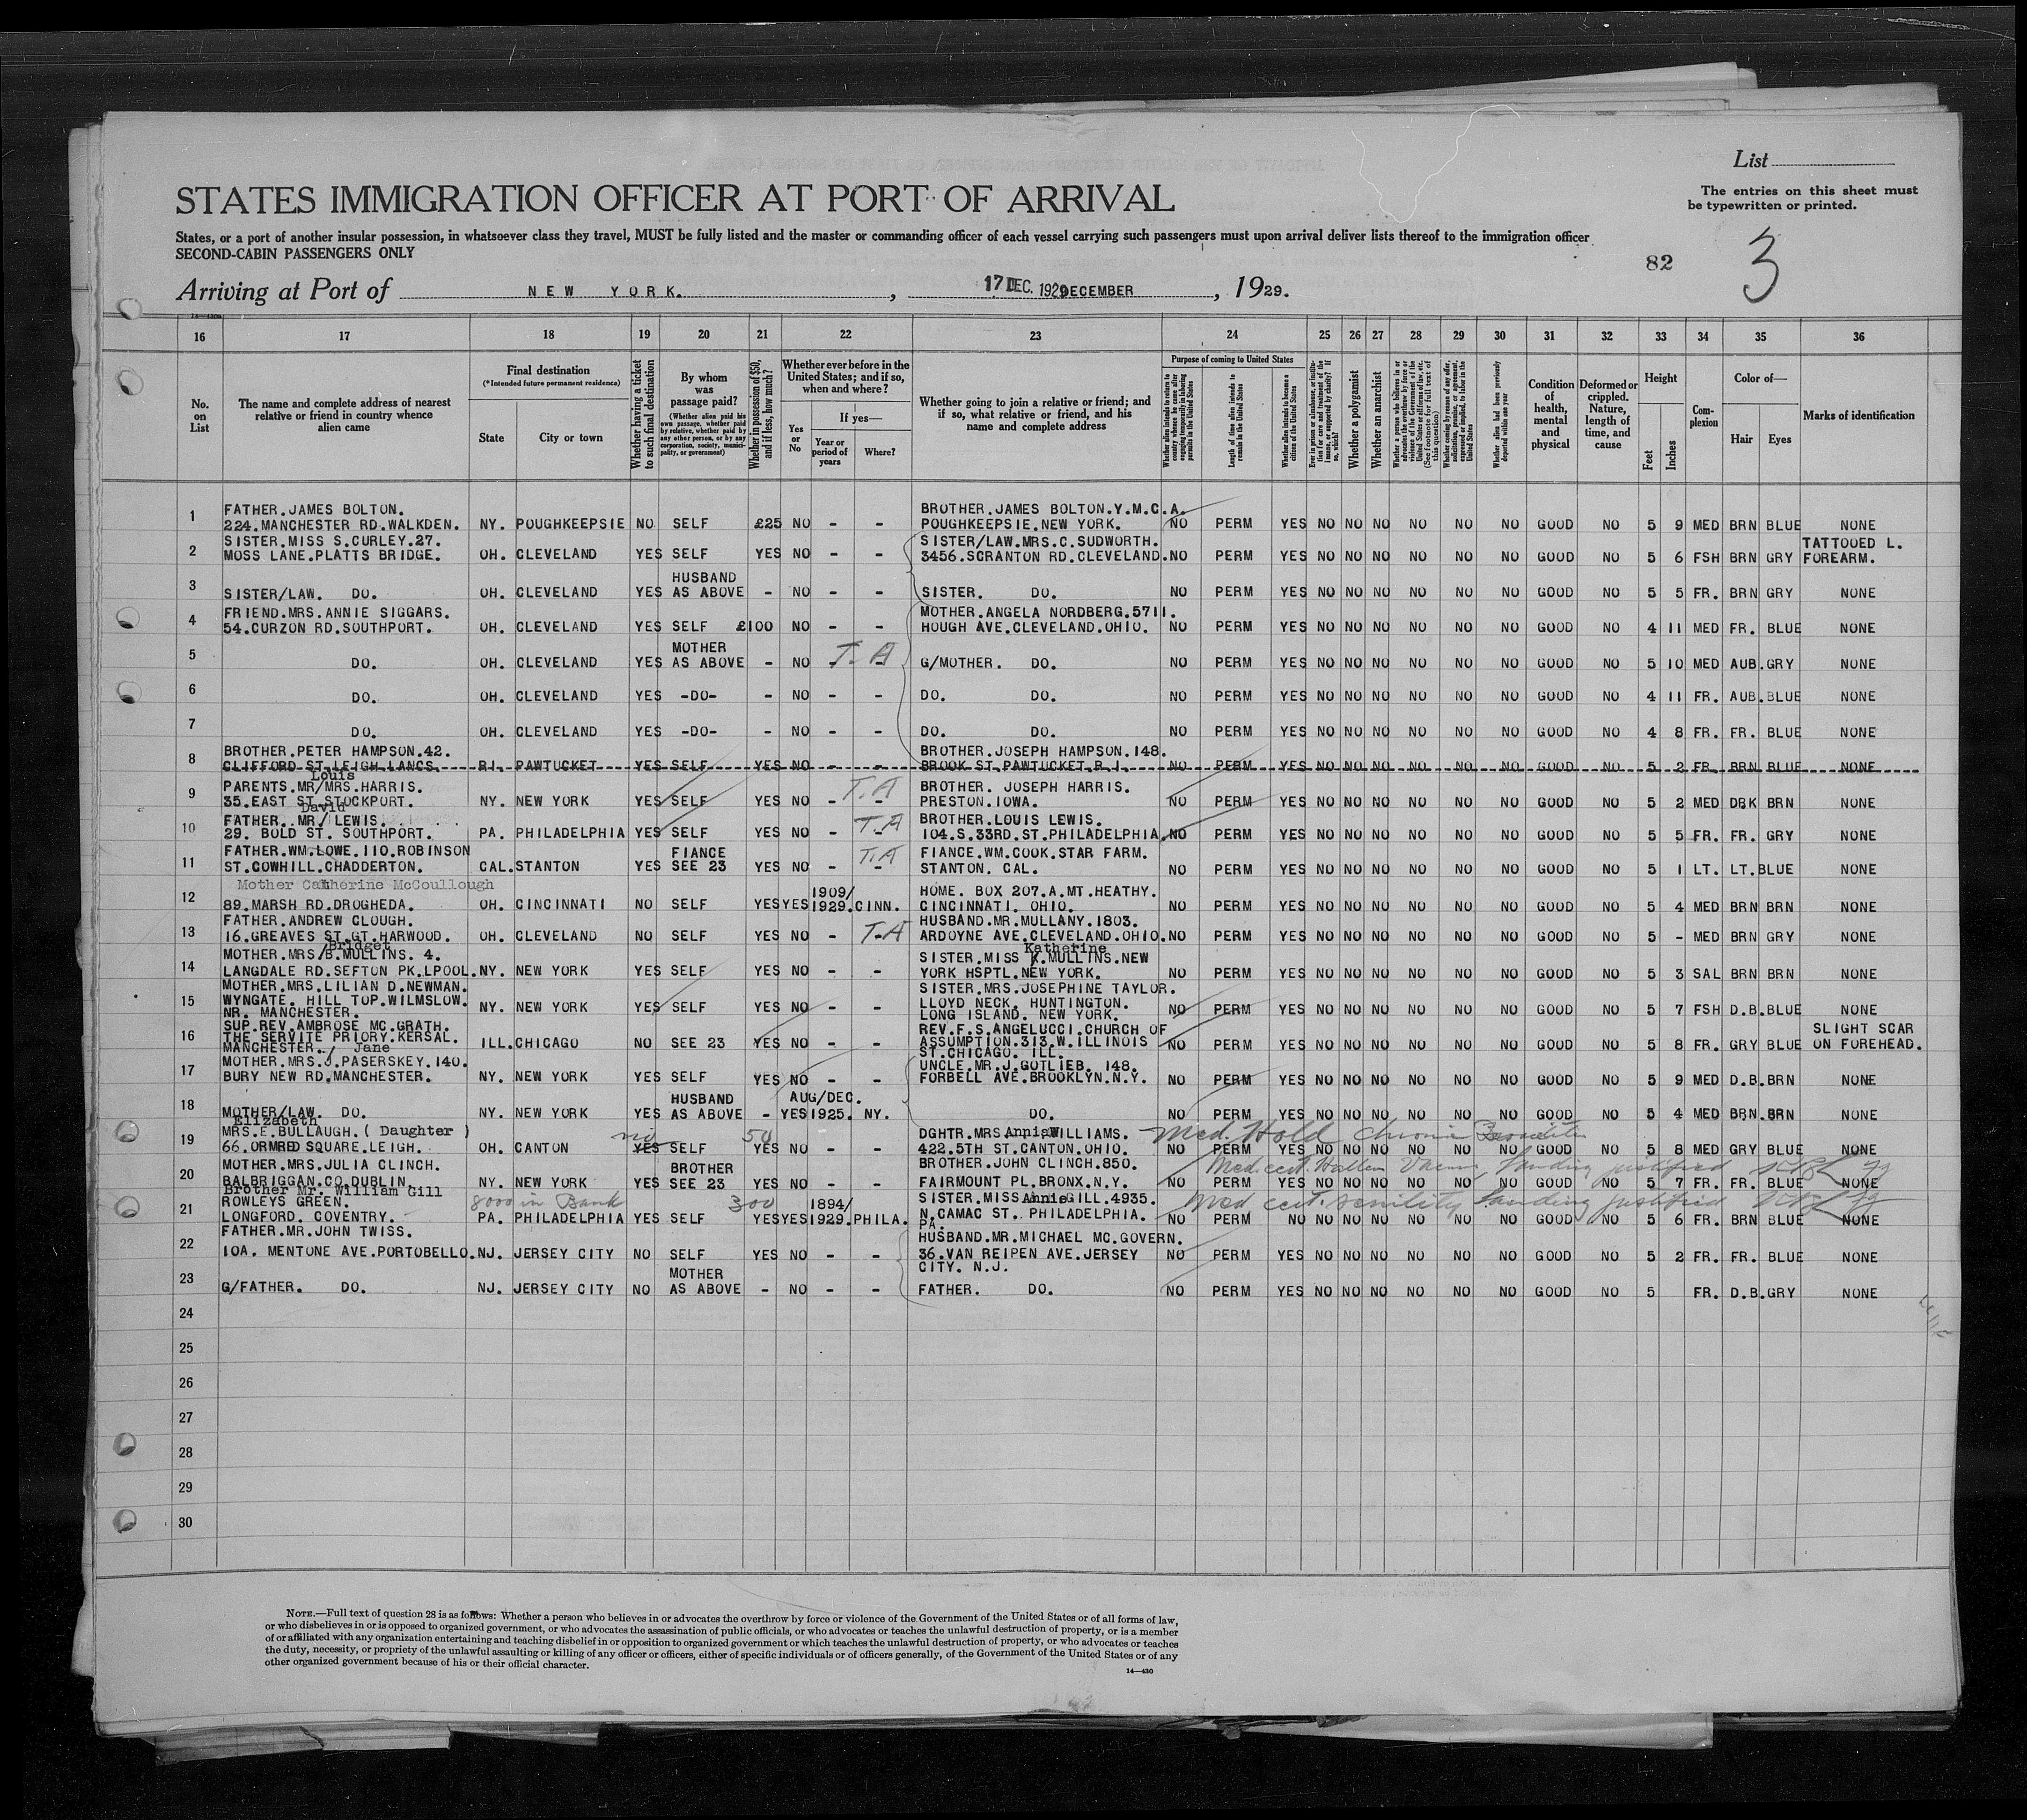 List
STATES IMMIGRATION OFFICER AT PORT OF ARRIVAL
The entries on this sheet must
be typewritten or printed.
States, or a port of another insular possession, in whatsoever class they travel, MUST be fully listed and the master or commanding officer of each vessel carrying such passengers must upon arrival deliver lists thereof to the immigration officer
SECOND-CABIN PASSENGERS ONLY
82 3
Arriving at Port of NEW YORK. , 17 DEC. 1929 DECEMBER , 1929.
16 17 18 19 20 21 22 23 24 25 26 27 28 29 30 31 32 33 34 35 36
No. on List
The name and complete address of nearest relative or friend in country whence alien came
Final destination
(*Intended future permanent residence)
State
City or town
Whether having a ticket to such final destination
By whom was passage paid?
(Whether alien paid his own passage, whether paid by relative, whether paid by any other person, or by any corporation, society, municipality, or government)
Whether in possession of $50, and if less, how much?
Whether ever before in the United States; and if so, when and where?
Yes or No
If yes—
Year or period of years
Where?
Whether going to join a relative or friend; and if so, what relative or friend, and his name and complete address
Purpose of coming to United States
Whether alien intends to return to country whence he came after engaging temporarily in laboring pursuits in the United States
Length of time alien intends to remain in the United States
Whether alien intends to become a citizen of the United States
Ever in prison or almshouse, or institution for care and treatment of the insane, or supported by charity? If so, which?
Whether a polygamist
Whether an anarchist
Whether a person who believes in or advocates the overthrow by force or violence of the Government of the United States or all forms of law, etc. (See footnote for full text of this question)
Whether coming by reason of any offer, solicitation, promise, or agreement, expressed or implied, to labor in the United States
Whether alien had been previously deported within one year
Condition of health, mental and physical
Deformed or crippled. Nature, length of time, and cause
Height
Feet
Inches
Complexion
Color of—
Hair
Eyes
Marks of identification
1 FATHER.JAMES BOLTON. BROTHER.JAMES BOLTON.Y.M.C.A.
224.MANCHESTER RD.WALKDEN. NY. POUGHKEEPSIE NO SELF £25 NO - - POUGHKEEPSIE.NEW YORK. NO PERM YES NO NO NO NO NO NO GOOD NO 5 9 MED BRN BLUE NONE
2 SISTER.MISS S.CURLEY.27. SISTER/LAW.MRS.C.SUDWORTH. TATTOOED L.
MOSS LANE.PLATTS BRIDGE. OH. CLEVELAND YES SELF YES NO - - 3456.SCRANTON RD.CLEVELAND. NO PERM YES NO NO NO NO NO NO GOOD NO 5 6 FSH BRN GRY FOREARM.
3 HUSBAND
SISTER/LAW. DO. OH. CLEVELAND YES AS ABOVE - NO - - SISTER. DO. NO PERM YES NO NO NO NO NO NO GOOD NO 5 5 FR. BRN GRY NONE
4 FRIEND.MRS.ANNIE SIGGARS. MOTHER.ANGELA NORDBERG.5711.
54.CURZON RD.SOUTHPORT. OH. CLEVELAND YES SELF £100 NO - - HOUGH AVE.CLEVELAND.OHIO. NO PERM YES NO NO NO NO NO NO GOOD NO 4 11 MED FR. BLUE NONE
5 MOTHER
DO. OH. CLEVELAND YES AS ABOVE - NO - - T.A G/MOTHER. DO. NO PERM YES NO NO NO NO NO NO GOOD NO 5 10 MED AUB. GRY NONE
6 DO. OH. CLEVELAND YES -DO- - NO - - DO. DO. NO PERM YES NO NO NO NO NO NO GOOD NO 4 11 FR. AUB. BLUE NONE
7 DO. OH. CLEVELAND YES -DO- - NO - - DO. DO. NO PERM YES NO NO NO NO NO NO GOOD NO 4 8 FR. FR. BLUE NONE
8 BROTHER.PETER HAMPSON.42. BROTHER.JOSEPH HAMPSON.148.
CLIFFORD ST.LEIGH.LANCS. RI. PAWTUCKET YES SELF YES NO - - BROOK ST.PAWTUCKET.R.I. NO PERM YES NO NO NO NO NO NO GOOD NO 5 2 FR. BRN BLUE NONE
Louis
9 PARENTS.MR/MRS.HARRIS. T.A BROTHER. JOSEPH HARRIS.
35.EAST ST.STOCKPORT. NY. NEW YORK YES SELF YES NO - - PRESTON.IOWA. NO PERM YES NO NO NO NO NO NO GOOD NO 5 2 MED DBK BRN NONE
David
10 FATHER. MR/ LEWIS. T.A BROTHER.LOUIS LEWIS.
29. BOLD ST. SOUTHPORT. PA. PHILADELPHIA YES SELF YES NO - - 104.S.33RD.ST.PHILADELPHIA. NO PERM YES NO NO NO NO NO NO GOOD NO 5 5 FR. FR. GRY NONE
11 FATHER.WM.LOWE.110.ROBINSON FIANCE T.A FIANCE.WM.COOK.STAR FARM.
ST.COWHILL.CHADDERTON. CAL. STANTON YES SEE 23 YES NO - - STANTON. CAL. NO PERM YES NO NO NO NO NO NO GOOD NO 5 1 LT. LT. BLUE NONE
12 Mother Catherine McCoullough 1909/ HOME. BOX 207.A.MT.HEATHY.
89.MARSH RD.DROGHEDA. OH. CINCINNATI NO SELF YES YES 1929. CINN. CINCINNATI. OHIO. NO PERM YES NO NO NO NO NO NO GOOD NO 5 4 MED BRN BRN NONE
13 FATHER.ANDREW CLOUGH. T.A HUSBAND.MR.MULLANY.1803.
16.GREAVES ST.GT.HARWOOD. OH. CLEVELAND NO SELF YES NO - - ARDOYNE AVE.CLEVELAND.OHIO. NO PERM YES NO NO NO NO NO NO GOOD NO 5 - MED BRN GRY NONE
Bridget Katherine
14 MOTHER.MRS/B.MULLINS. 4. SISTER.MISS K.MULLINS.NEW
LANGDALE RD.SEFTON PK.LPOOL. NY. NEW YORK YES SELF YES NO - - YORK HSPTL.NEW YORK. NO PERM YES NO NO NO NO NO NO GOOD NO 5 3 SAL BRN BRN NONE
15 MOTHER.MRS.LILIAN D.NEWMAN. SISTER.MRS.JOSEPHINE TAYLOR.
WYNGATE. HILL TOP.WILMSLOW. NY. NEW YORK YES SELF YES NO - - LLOYD NECK. HUNTINGTON. NO PERM YES NO NO NO NO NO NO GOOD NO 5 7 FSH D.B. BLUE NONE
NR. MANCHESTER. LONG ISLAND. NEW YORK.
16 SUP.REV.AMBROSE MC.GRATH. REV.F.S.ANGELUCCI.CHURCH OF SLIGHT SCAR
THE SERVITE PRIORY.KERSAL. ILL. CHICAGO NO SEE 23 YES NO - - ASSUMPTION.313.W.ILLINOIS NO PERM YES NO NO NO NO NO NO GOOD NO 5 8 FR. GRY BLUE ON FOREHEAD.
MANCHESTER. Jane ST.CHICAGO. ILL.
17 MOTHER.MRS.J.PASERSKEY.140. UNCLE.MR.J.GOTLIEB. 148.
BURY NEW RD.MANCHESTER. NY. NEW YORK YES SELF YES NO - - FORBELL AVE.BROOKLYN.N.Y. NO PERM YES NO NO NO NO NO NO GOOD NO 5 9 MED D.B. BRN NONE
18 HUSBAND AUG/DEC.
MOTHER/LAW. DO. NY. NEW YORK YES AS ABOVE - YES 1925. NY. DO. NO PERM YES NO NO NO NO NO NO GOOD NO 5 4 MED BRN. BRN NONE
Elizabeth
19 MRS.E.BULLAUGH.( Daughter ) no 50 DGHTR.MRS Annie WILLIAMS. Med. Hold chronic Bronchitis
66.ORMRED SQUARE.LEIGH. OH. CANTON YES SELF YES NO - - 422.5TH ST.CANTON.OHIO. NO PERM YES NO NO NO NO NO NO GOOD NO 5 8 MED GRY BLUE NONE
20 MOTHER.MRS.JULIA CLINCH. BROTHER BROTHER.JOHN CLINCH.850. Med. cert. landing justified
BALBRIGGAN.CO.DUBLIN. NY. NEW YORK YES SEE 23 YES NO - - FAIRMOUNT PL.BRONX.N.Y. NO PERM YES NO NO NO NO NO NO GOOD NO 5 7 FR. FR. BLUE NONE
Brother Mr. William Gill
21 ROWLEYS GREEN. 8000 in Bank 300 1894/ SISTER.MISS Annie GILL.4935. Med cert. senility landing justified
LONGFORD. COVENTRY. PA. PHILADELPHIA YES SELF YES YES 1929. PHILA. N.CAMAC ST. PHILADELPHIA. NO PERM NO NO NO NO NO NO NO GOOD NO 5 6 FR. BRN BLUE NONE
PA.
22 FATHER.MR.JOHN TWISS. HUSBAND.MR.MICHAEL MC.GOVERN.
10A. MENTONE AVE.PORTOBELLO. NJ. JERSEY CITY NO SELF YES NO - - 36.VAN REIPEN AVE.JERSEY NO PERM YES NO NO NO NO NO NO GOOD NO 5 2 FR. FR. BLUE NONE
CITY. N.J.
23 MOTHER
G/FATHER. DO. NJ. JERSEY CITY NO AS ABOVE - NO - - FATHER. DO. NO PERM YES NO NO NO NO NO NO GOOD NO 5 FR. D.B. GRY NONE
24
25
26
27
28
29
30
NOTE.—Full text of question 28 is as follows: Whether a person who believes in or advocates the overthrow by force or violence of the Government of the United States or of all forms of law,
or who disbelieves in or is opposed to organized government, or who advocates the assassination of public officials, or who advocates or teaches the unlawful destruction of property, or is a member
of or affiliated with any organization entertaining and teaching disbelief in or opposition to organized government or which teaches the unlawful destruction of property, or who advocates or teaches
the duty, necessity, or propriety of the unlawful assaulting or killing of any officer or officers, either of specific individuals or of officers generally, of the Government of the United States or of any
other organized government because of his or their official character.
14—430